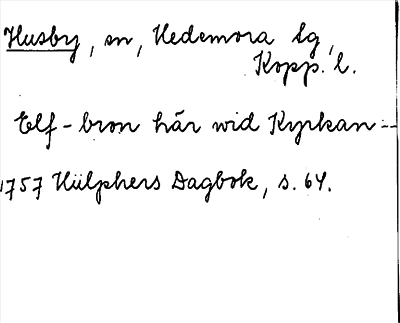 Husby, sn, Hedemora lg,
Kopp. l.
Elf-bron här wid Kyrkan --
1757 Hülphers Dagbok, s. 64.